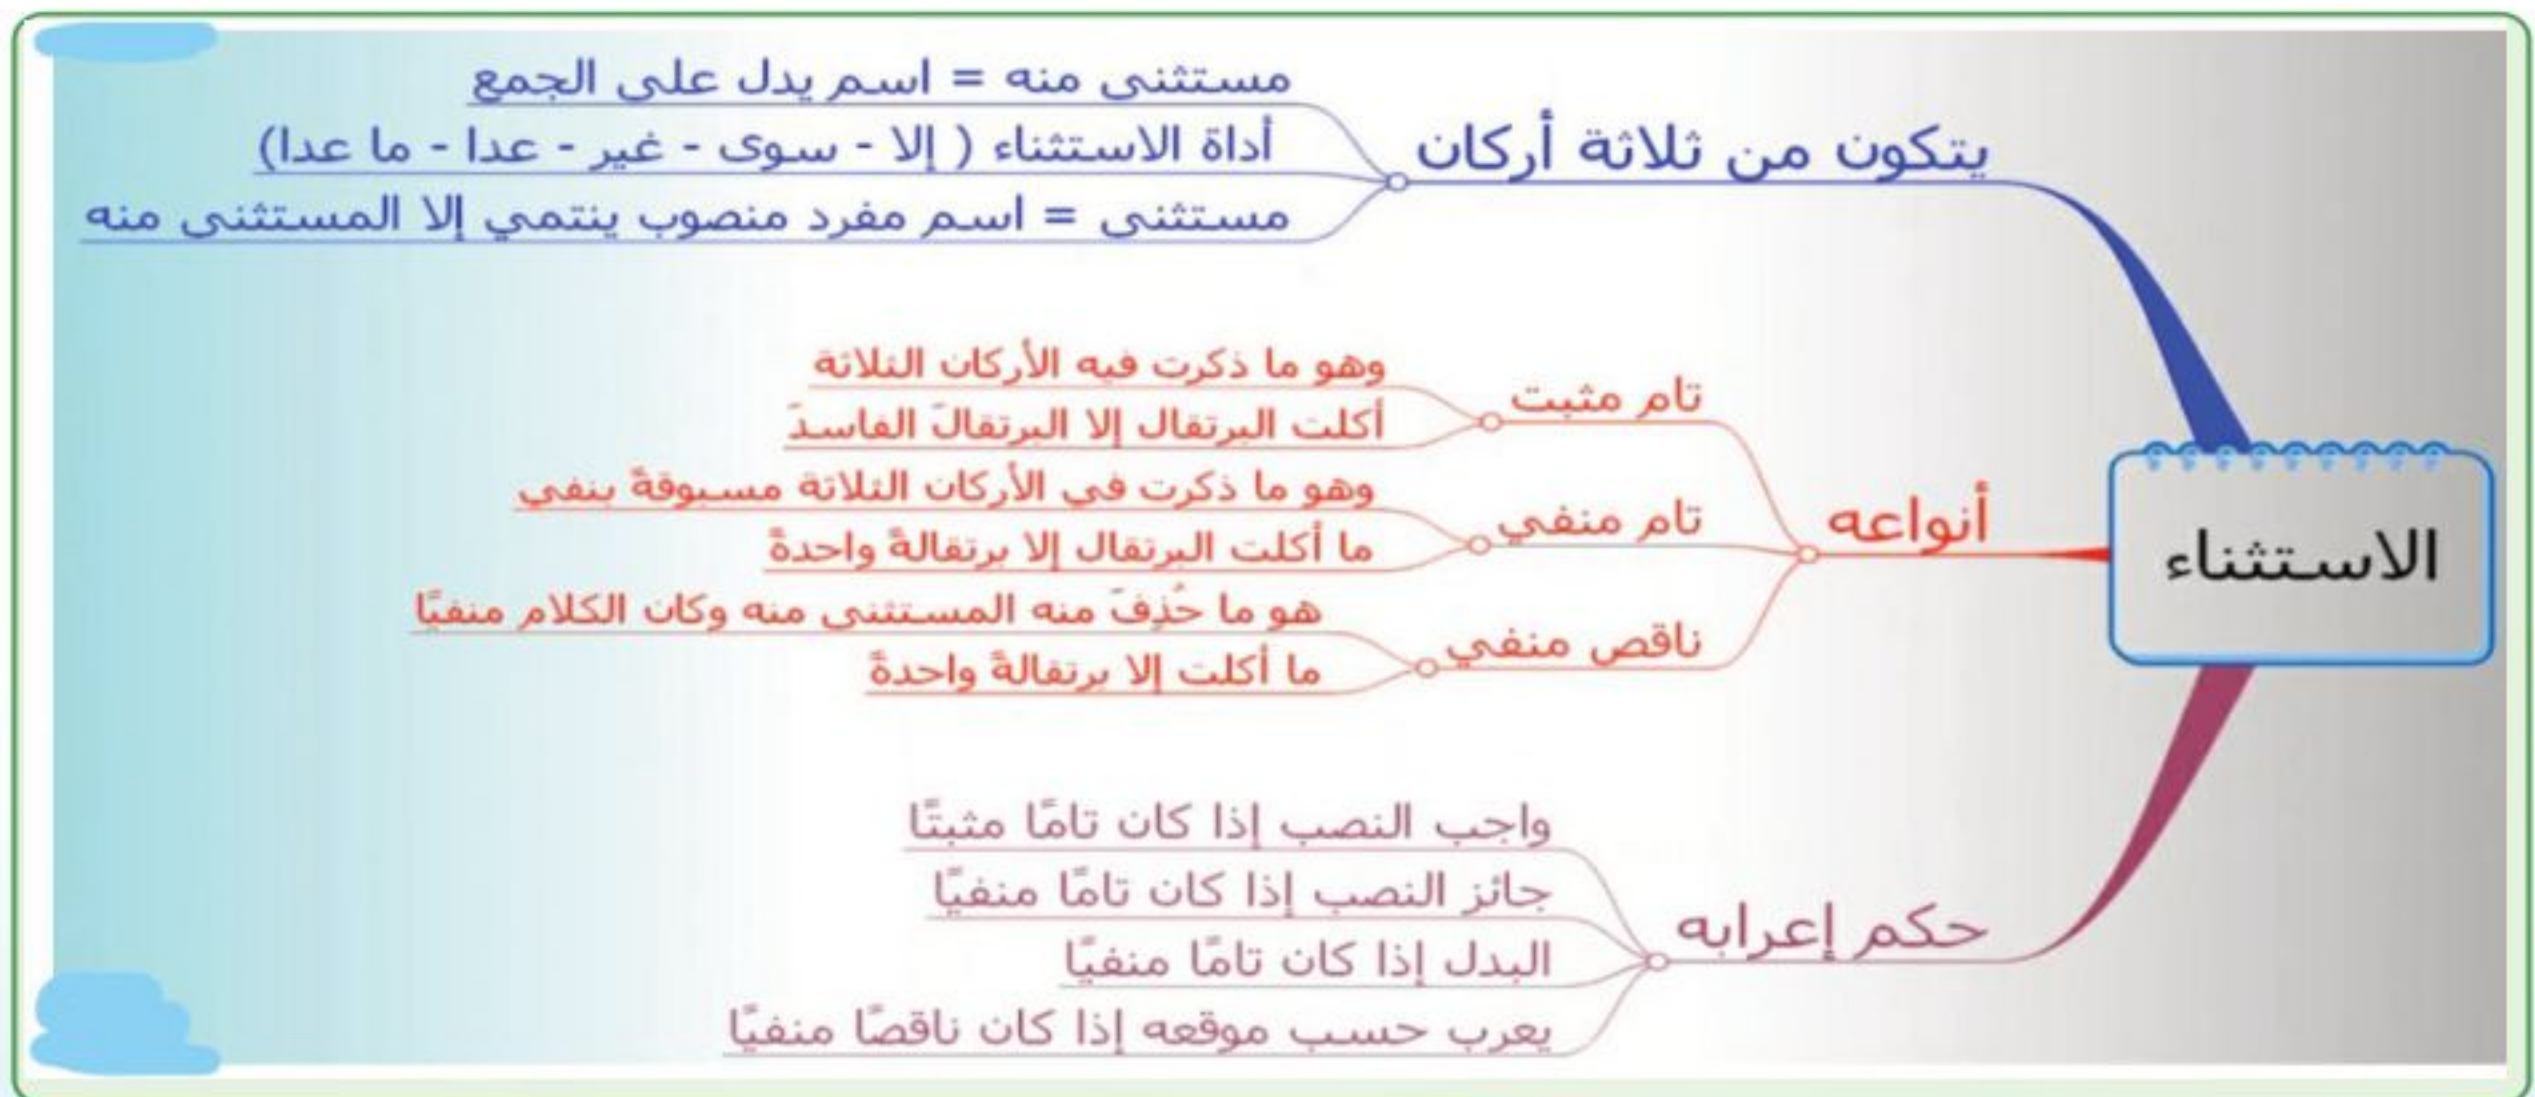 الاستثناء
يتكون من ثلاثة أركان
مستثنى منه = اسم يدل على الجمع
أداة الاستثناء ( إلا - سوى - غير - عدا - ما عدا)
مستثنى = اسم مفرد منصوب ينتمي إلا المستثنى منه
أنواعه
تام مثبت
وهو ما ذكرت فيه الأركان الثلاثة
أكلت البرتقال إلا البرتقالَ الفاسدَ
تام منفي
وهو ما ذكرت في الأركان الثلاثة مسبوقةً بنفي
ما أكلت البرتقال إلا برتقالةً واحدةً
ناقص منفي
هو ما حُذِفَ منه المستثنى منه وكان الكلام منفيًا
ما أكلت إلا برتقالةً واحدةً
حكم إعرابه
واجب النصب إذا كان تامًا مثبتًا
جائز النصب إذا كان تامًا منفيًا
البدل إذا كان تامًا منفيًا
يعرب حسب موقعه إذا كان ناقصًا منفيًا